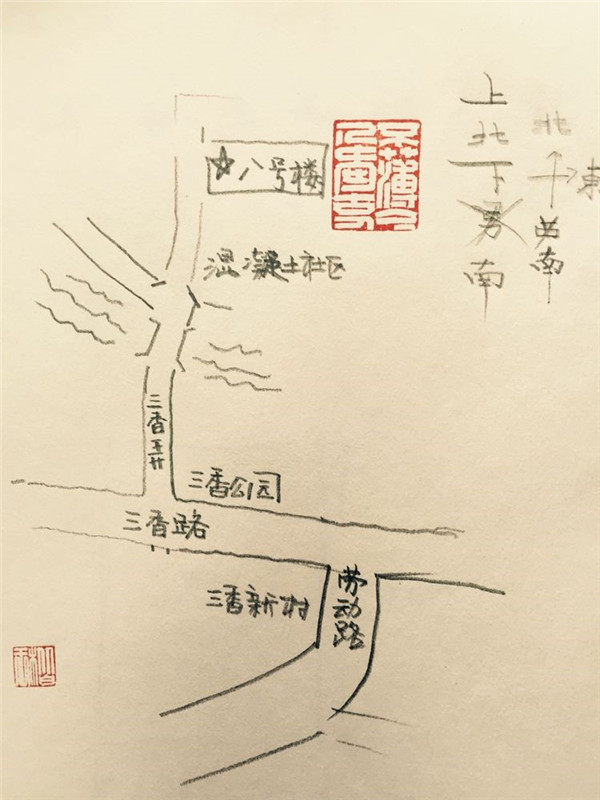 上北下男南
北
東
南
不薄今
人愛古人
八号楼
混凝土社区
三香弄
三香公园
三香路
三香新村
劳动路